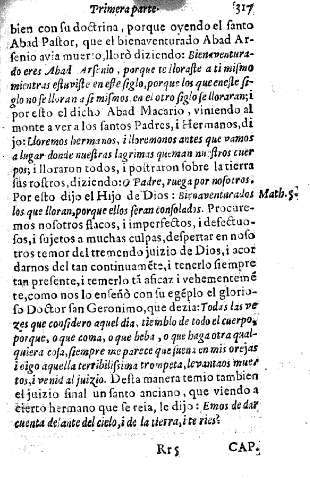 Primera parte. 317
bien con su doctrina, porque oyendo el santo
Abad Pastor, que el bienaventurado Abad Ar-
senio avia muerto, lloró diziendo: Bienaventura-
do eres Abad Arsenio, porque te lloraste a ti mismo
mientras estuviste en este siglo, porque los que en este si-
glo no se lloran a si mismos, en el otro siglo se lloraran; i
por esto el dicho Abad Macario, viniendo al
monte a ver a los santos Padres, i Hermanos, di
jo: Lloremos hermanos, i lloremonos antes que vamos
a lugar donde nuestras lagrimas queman nuestros cuer
pos; i lloraron todos, i postraron sobre la tierra
sus rostros, diziendo: O Padre, ruega por nosotros.
Por esto dijo el Hijo de Dios: Bienaventurados Math. 5.
los que lloran, porque ellos seran consolados. Procure-
mos nosotros flacos, i imperfectos, i defectuo-
sos, i sujetos a muchas culpas, despertar en noso
tros temor del tremendo juizio de Dios, i acor
darnos del tan continuamẽte, i tenerlo siempre
tan presente, i temerlo tã aficaz i vehementemẽ
te, como nos lo enseñò con su egẽplo el glorio-
so Doctor san Geronimo, que dezia: Todas las ve
zes que considero aquel dia, tiemblo de todo el cuerpo,
porque, o que coma, o que beba, o que haga otra qual-
quiera cosa, siempre me parece que suena en mis orejas
i oigo aquella terribilissima trompeta, levantaos muer
tos, i venid al juizio. Desta manera temio tambien
el juizio final un santo anciano, que viendo a
cierto hermano que se reia, le dijo: Emos de dar
cuenta delante del cielo, i de la tierra, i te ries?
Rr5 CAP.